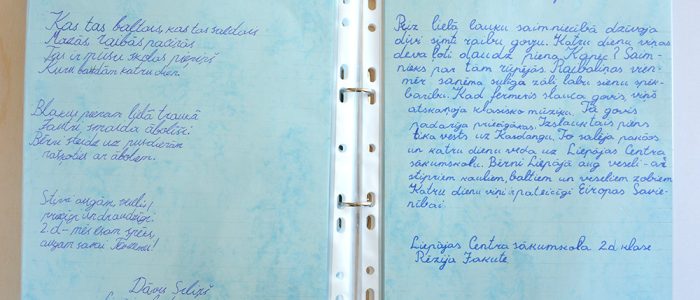 Kas tas baltais, kas tas saldais
Mazās, raibās paciņās
Tas ir mūsu skolas pieniņš
Kuru baudām katru dien.
Blakus pienam lielā traukā
Jautri smaida āboliņi
Bērni steidz uz pusdienām
našķoties ar āboliem.
Stipri augam, veseli,
priecīgi un draudzīgi
2.d - mēs esam spēks,
augam savai Tēvzemei!
Dāvis
Reiz lielā lauku saimniecībā dzīvoja
divi simti raibu govju. Katru dienu viņas
deva ļoti daudz piena. Kāpēc? Saim-
nieks par tām rūpējās. Raibaliņas vien-
mēr saņēma sulīgu zāli labu sienu spēk-
barību. Kad fermeris slauca govis, viņš
atskaņoja klasisko mūziku. Tā govis
padarīja priecīgākas. Izslauktais piens
tika vests uz Kazdangu. To salēja paciņās
un katru dienu veda uz Liepājas Centra
sākumskolu. Bērni Liepājā aug veseli - ar
stipriem kauliem, baltiem un veseliem zobiem.
Katru dienu viņi ir pateicīgi Eiropas Savie-
nībai.
Liepājas Centra sākumskola 2.d klase
Rēzija